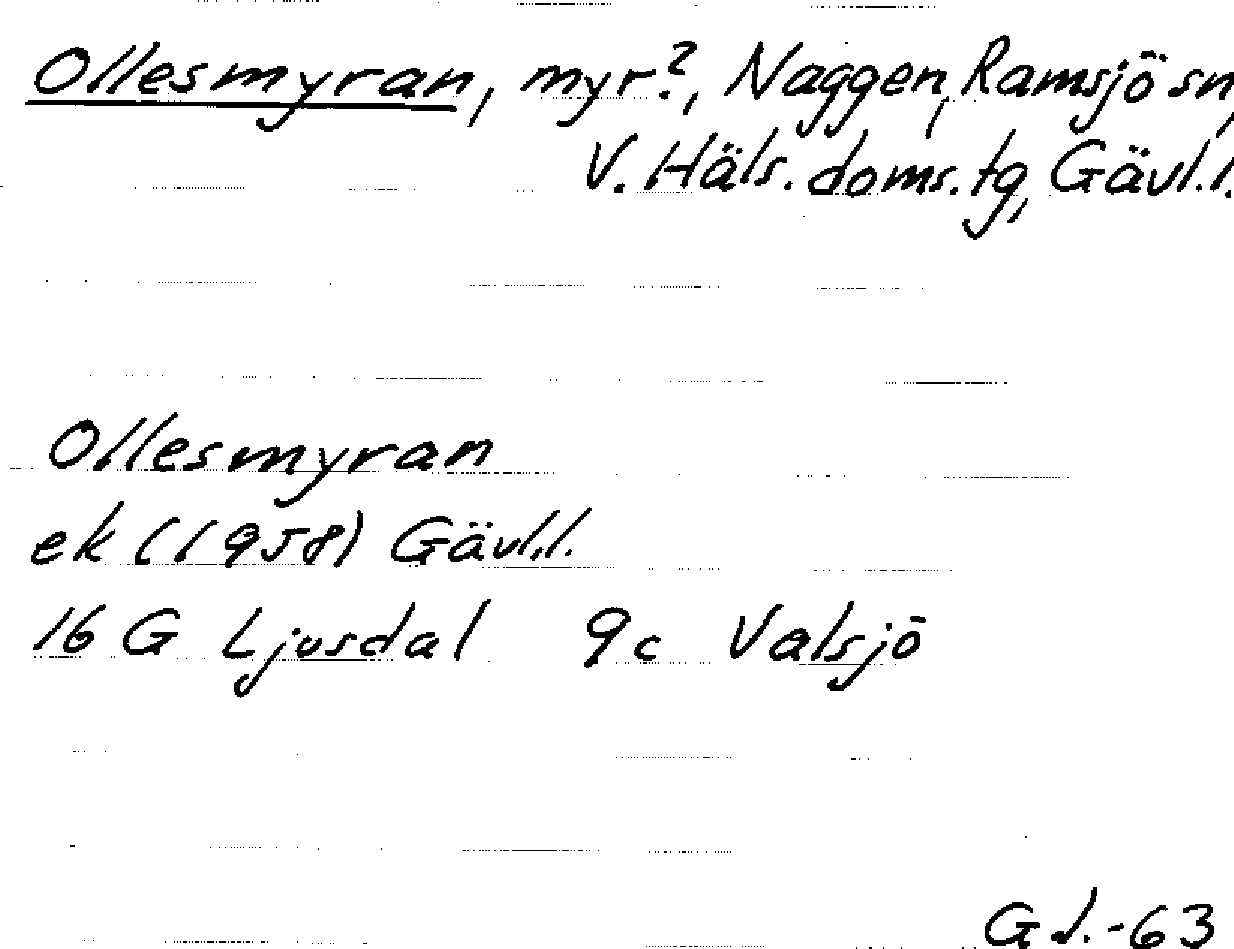 Ollesmyran, myr?, Naggen, Ramsjö sn,
V. Häls. doms. tg, Gävl. l.
Ollesmyran
ek (1958) Gävl.l.
16 G Ljusdal 9c Valsjö
G d. -63